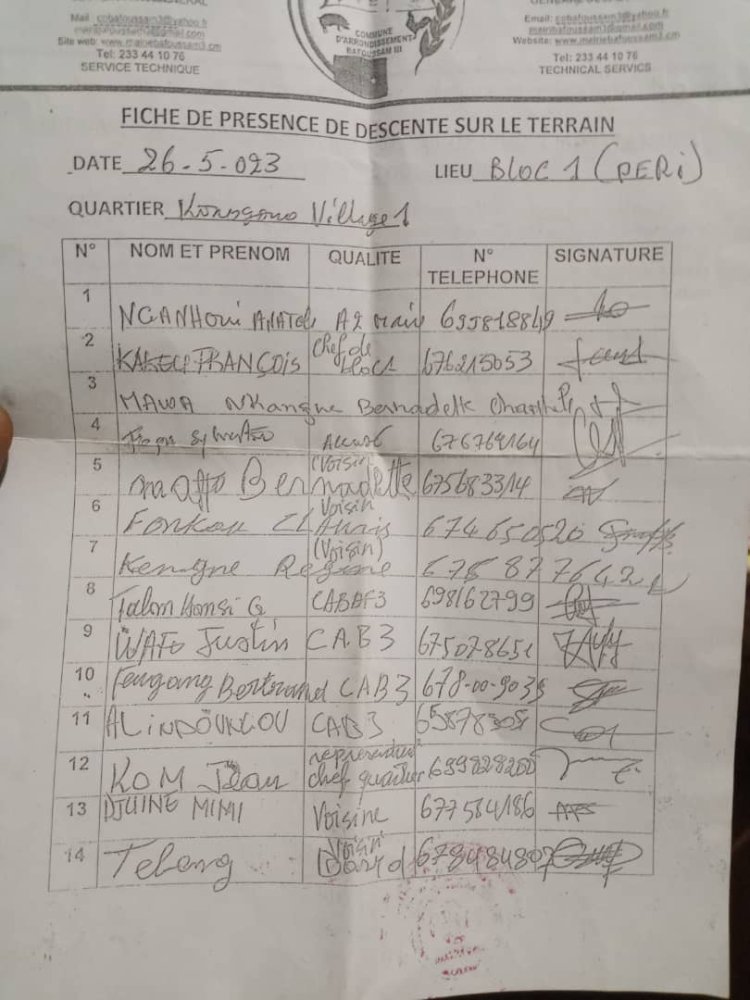 Mail
Site web: www.mairiebafoussam3.cm
Tel: 233 44 10 76
SERVICE TECHNIQUE
COMMUNE
D'ARRONDISSEMENT
BAFOUSSAM III
Email: cobafoussam3@yahoo.fr
Website: www.mairiebafoussam3.cm
Tel: 233 44 10 76
TECHNICAL SERVICS
FICHE DE PRESENCE DE DESCENTE SUR LE TERRAIN
DATE 26-5-023 LIEU BLOC 1 (PERI)
QUARTIER Village 1
N° NOM ET PRENOM QUALITE N° TELEPHONE SIGNATURE
1 NGANHOUI ANATOLE A2 Maire 695818849
2 FRANÇOIS chef de bloc 676215053
3 MAWA Nkangne Bernadette
4 Sylvestre 676769164
5 Maffo Bernadette (Voisin) 675683314
6 Fonkou Voisin 674650520
7 Kengne Regine (Voisin) 675877642
8 G CABAF3 698162799
9 WAFO Justin CAB3 675078651
10 Feugang Bertrand CAB3 678-00-9035
11 ALINDOUNGOU CAB3 65878308
12 KOM Jean representant chef quartier 699828200
13 DJUINE MIMI Voisine 677584186
14 Teleng Voisin David 678484807